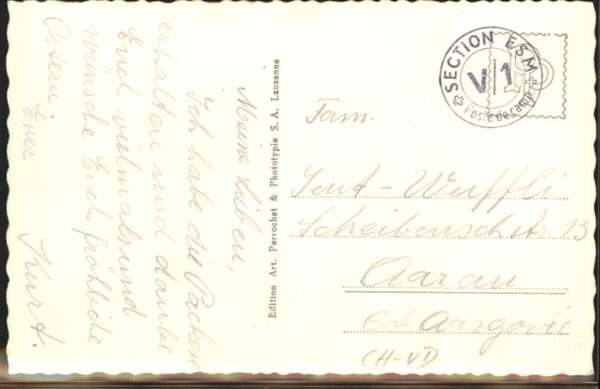 Meine Lieben,
Ich habe die Packen
erhalten und danke
Euch vielmals und
wünsche Euch fröhliche
Ostern. Euer
Kurt.
Edition Art. Perrochet & Phototypie S. A. Lausanne
SECTION ESM
V 1
Poste de camp
Fam.
Sent-Wüffli
Scheibenschstr. 13
Aarau
Ct. Aargovie
CH-VD